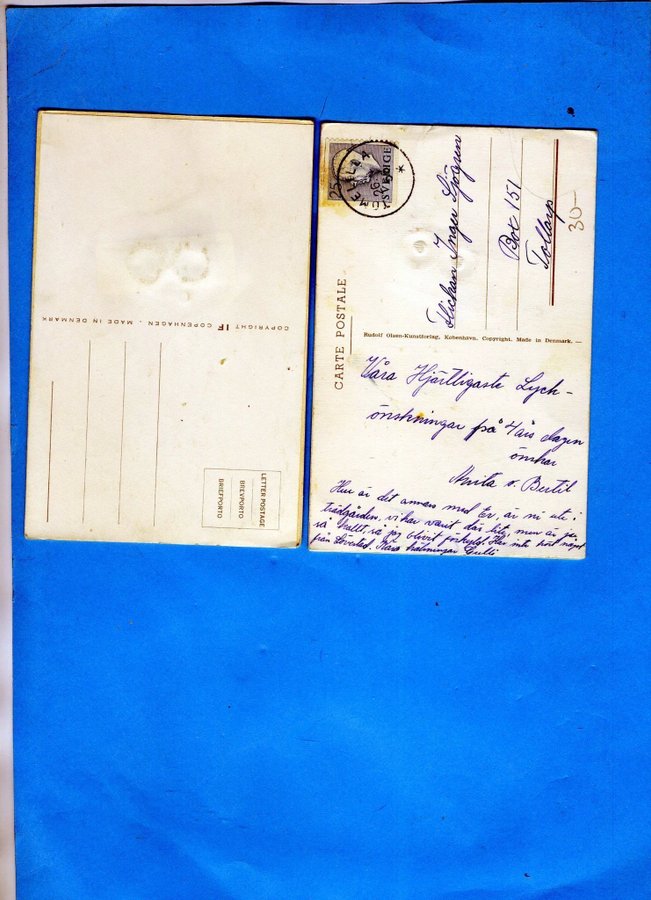 COPYRIGHT IF COPENHAGEN . MADE IN DENMARK
LETTER POSTAGE
BREVPORTO
BRIEFPORTO
25
SVERIGE
TOMELILLA
26
Flickan Inger Sjögren
Box 151
Tollarp
30-
CARTE POSTALE
Rudolf Olsen-Kunstforlag, København. Copyright. Made in Denmark. —
Våra Hjärtligaste Lyck-
önskningar på 4 års dagen
önskar
Anita o. Bertil
Hur är det annars med Er, är ni ute i
trädgården, vi har varit där lite, men är ju
så kallt, så jag blivit förkyld. Har inte hört något
från Lövestad. Kära hälsningar